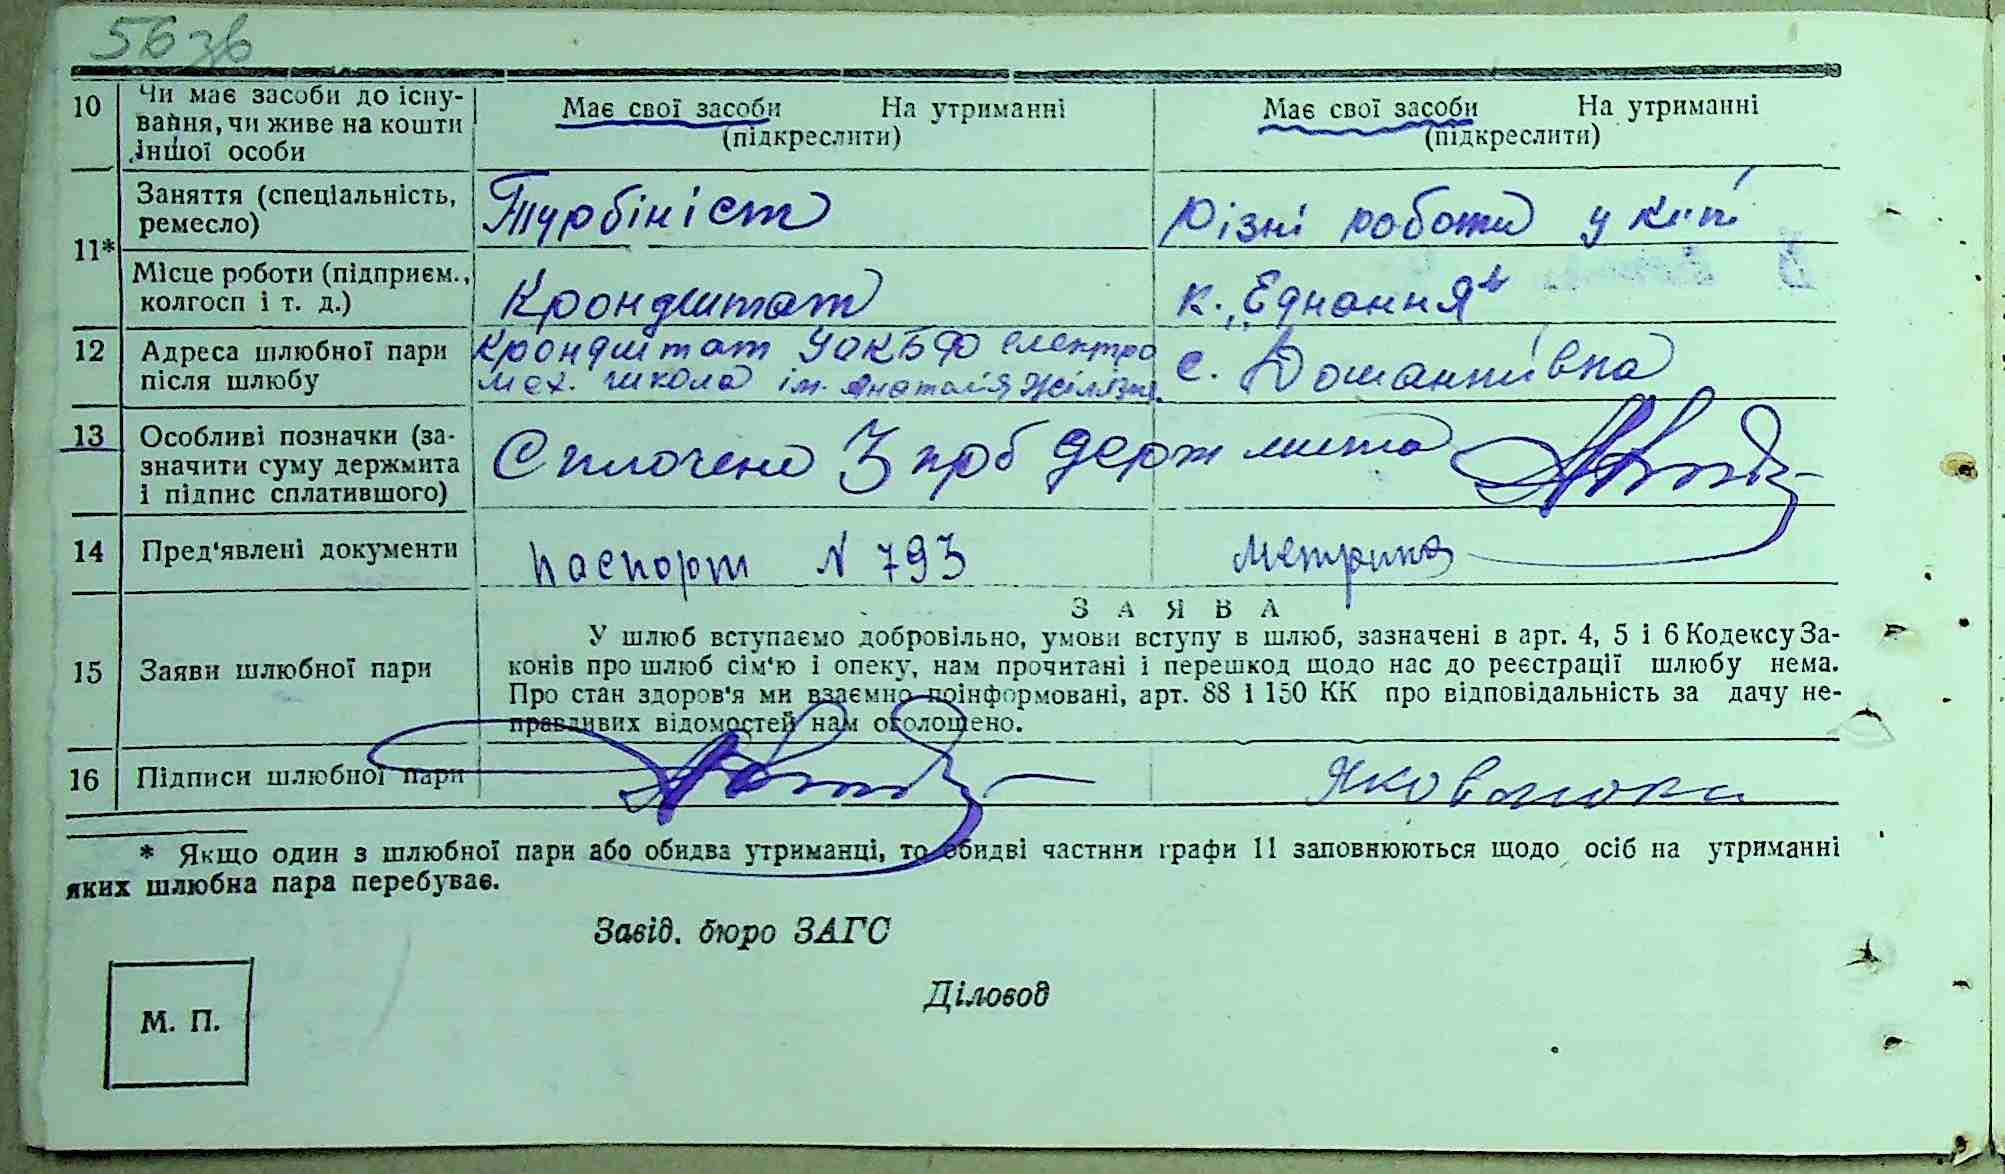 56 зв
10 Чи має засоби до існу- Має свої засоби На утриманні Має свої засоби На утриманні
вання, чи живе на кошти (підкреслити) (підкреслити)
іншої особи
Заняття (спеціальність, Турбініст Різні роботи у к-пі
ремесло)
11*
Місце роботи (підприєм., Крондштат к. „Еднання"
колгосп і т. д.)
12 Адреса шлюбної пари Крондштат УОКБФ електро с. Доманпівка
після шлюбу мех. школа ім. Анатолія
13 Особливі позначки (за- Сплочено 3 крб держ мита
значити суму держмита
і підпис сплатившого)
14 Пред'явлені документи паспорт N 793 метрика
З А Я В А
У шлюб вступаємо добровільно, умови вступу в шлюб, зазначені в арт. 4, 5 і 6 Кодексу За-
15 Заяви шлюбної пари конів про шлюб сім'ю і опеку, нам прочитані і перешкод щодо нас до реєстрації шлюбу нема.
Про стан здоров'я ми взаємно поінформовані, арт. 88 і 150 КК про відповідальність за дачу не-
правдивих відомостей нам оголошено.
16 Підписи шлюбної пари
* Якщо один з шлюбної пари або обидва утриманці, то обидві частини графи 11 заповнюються щодо осіб на утриманні
яких шлюбна пара перебуває.
Завід. бюро ЗАГС
Діловод
М. П.